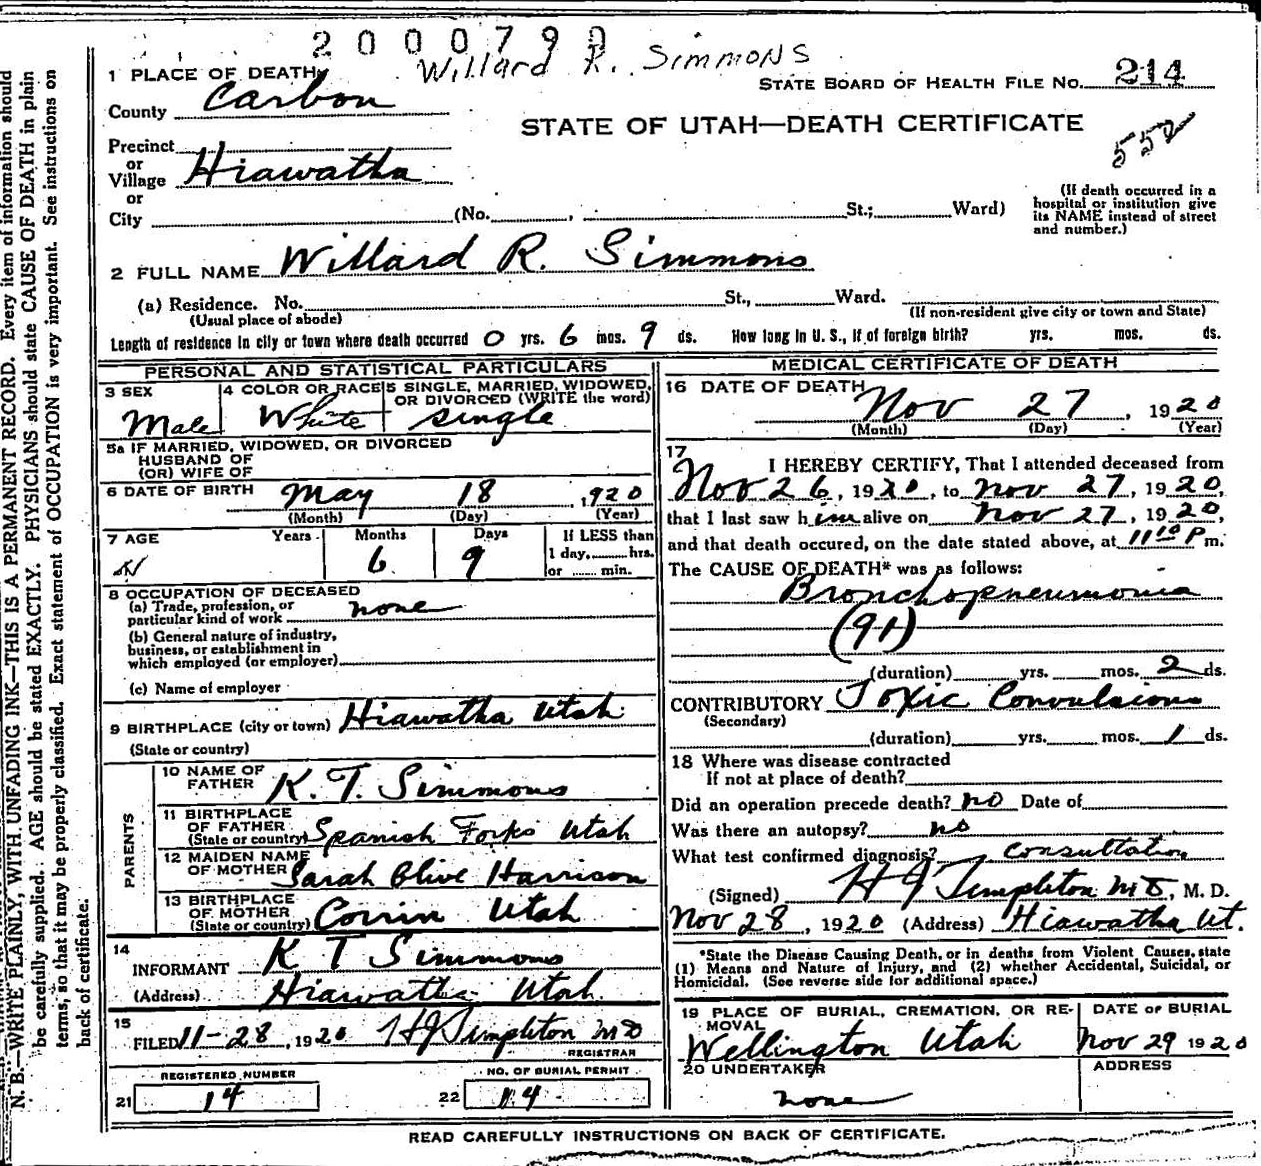 2000790
Willard R. Simmons
1 PLACE OF DEATH
STATE BOARD OF HEALTH FILE No. 214
County Carbon
STATE OF UTAH—DEATH CERTIFICATE
552
Precinct
or
Village Hiawatha
or
City (No. , St.; Ward)
(If death occurred in a
hospital or institution give
its NAME instead of street
and number.)
2 FULL NAME Willard R. Simmons
(a) Residence. No. St., Ward.
(Usual place of abode)
(If non-resident give city or town and State)
Length of residence in city or town where death occurred 0 yrs. 6 mos. 9 ds. How long in U. S., if of foreign birth? yrs. mos. ds.
PERSONAL AND STATISTICAL PARTICULARS
3 SEX
Male
4 COLOR OR RACE
White
5 SINGLE, MARRIED, WIDOWED,
OR DIVORCED (WRITE the word)
single
5a IF MARRIED, WIDOWED, OR DIVORCED
HUSBAND OF
(OR) WIFE OF
6 DATE OF BIRTH May 18 , 1920
(Month) (Day) (Year)
7 AGE Years Months Days If LESS than
6 9 1 day, hrs.
or min.
8 OCCUPATION OF DECEASED
(a) Trade, profession, or
particular kind of work none
(b) General nature of industry,
business, or establishment in
which employed (or employer)
(c) Name of employer
9 BIRTHPLACE (city or town) Hiawatha Utah
(State or country)
PARENTS
10 NAME OF
FATHER K. T. Simmons
11 BIRTHPLACE
OF FATHER
(State or country) Spanish Forks Utah
12 MAIDEN NAME
OF MOTHER Sarah Olive Harrison
13 BIRTHPLACE
OF MOTHER
(State or country) Corrin Utah
14
INFORMANT K T Simmons
(Address) Hiawatha Utah
15
FILED 11-28, 1920 HJ Templeton MD
REGISTRAR
REGISTERED NUMBER
21 14
NO. OF BURIAL PERMIT
22 14
MEDICAL CERTIFICATE OF DEATH
16 DATE OF DEATH
Nov 27 , 1920
(Month) (Day) (Year)
17
I HEREBY CERTIFY, That I attended deceased from
Nov 26, 1920, to Nov 27, 1920,
that I last saw him alive on Nov 27, 1920,
and that death occured, on the date stated above, at 11 10 P m.
The CAUSE OF DEATH* was as follows:
Bronchopneumonia
(91)
(duration) yrs. mos. 2 ds.
CONTRIBUTORY Toxic Convulsions
(Secondary)
(duration) yrs. mos. 1 ds.
18 Where was disease contracted
If not at place of death?
Did an operation precede death? no Date of
Was there an autopsy? no
What test confirmed diagnosis? Consultation
(Signed) H J Templeton MD, M. D.
Nov 28, 1920 (Address) Hiawatha Ut.
*State the Disease Causing Death, or in deaths from Violent Causes, state
(1) Means and Nature of Injury, and (2) whether Accidental, Suicidal, or
Homicidal. (See reverse side for additional space.)
19 PLACE OF BURIAL, CREMATION, OR RE-
MOVAL
Wellington Utah
DATE OF BURIAL
Nov 29 1920
20 UNDERTAKER
none
ADDRESS
READ CAREFULLY INSTRUCTIONS ON BACK OF CERTIFICATE.
N. B.—WRITE PLAINLY, WITH UNFADING INK—THIS IS A PERMANENT RECORD. Every item of information should
be carefully supplied. AGE should be stated EXACTLY. PHYSICIANS should state CAUSE OF DEATH in plain
terms, so that it may be properly classified. Exact statement of OCCUPATION is very important. See instructions on
back of certificate.